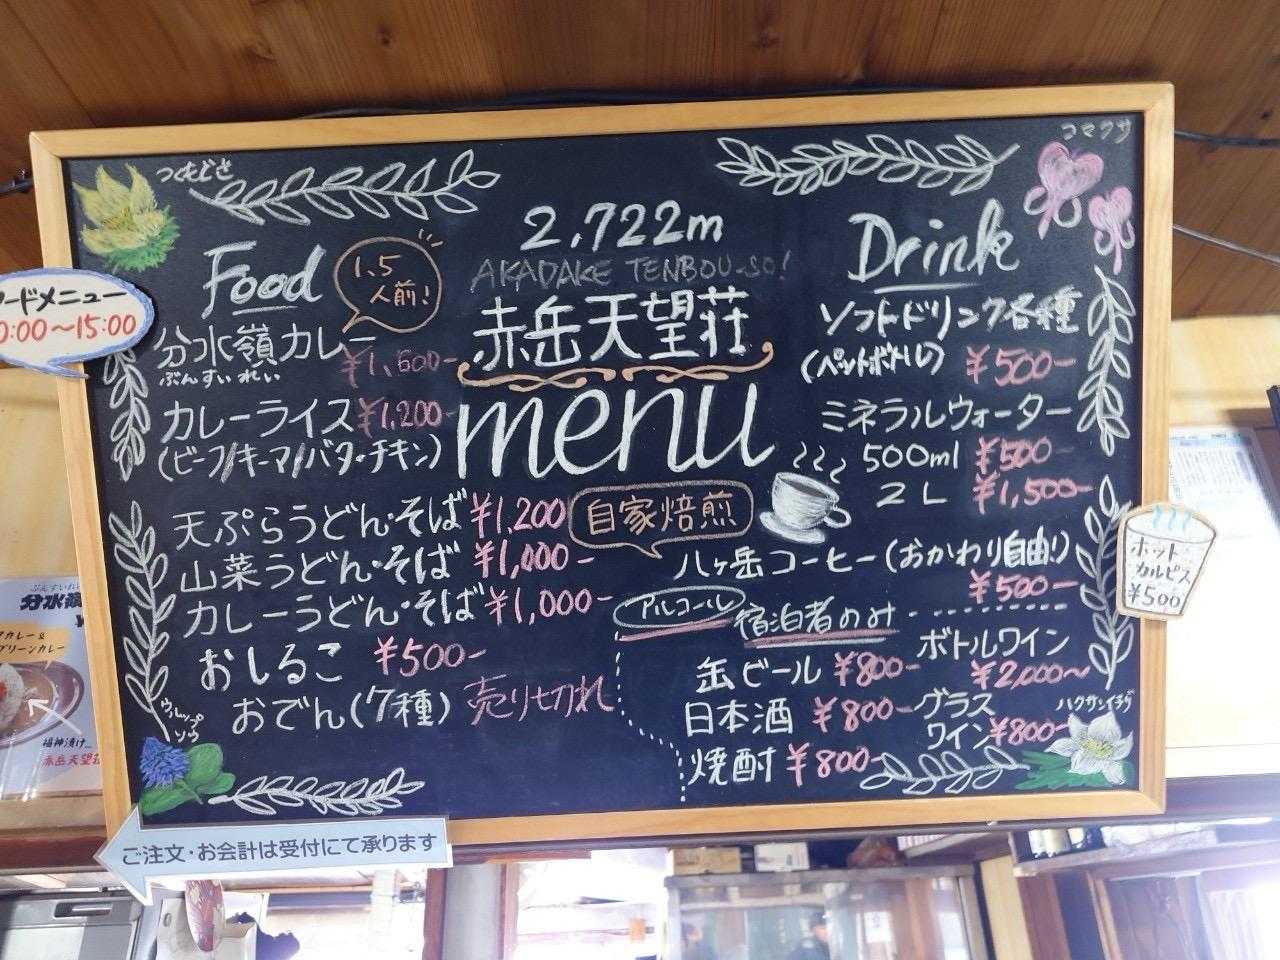 つくもぐさ
コマクサ
2,722m
AKADAKE TENBOU-SO!
赤岳天望荘
menu
Food
1.5
人前!
ードメニュー
0:00～15:00
分水嶺カレー
ぶんすいれい
カレーライス ¥1,200-
(ビーフ/キーマ/バターチキン)
天ぷらうどん・そば ¥1,200
山菜うどん・そば ¥1,000-
カレーうどん・そば ¥1,000-
おしるこ ¥500-
おでん(7種) 売り切れ
ウルップ
ソウ
Drink
ソフトドリンク各種
(ペットボトル) ¥500-
ミネラルウォーター
500ml ¥500-
2L ¥1,500-
自家焙煎
八ヶ岳コーヒー(おかわり自由!)
¥500-
ホット
カルピス
¥500
アルコール
宿泊者のみ
缶ビール ¥800-
日本酒 ¥800-
焼酎 ¥800-
ボトルワイン
¥2,000~
グラス
ワイン ¥800-
ハクサンイチゲ
ご注文・お会計は受付にて承ります
ぶんすいれい
分水
カレー&
グリーンカレー
福神漬け...
赤岳天望荘